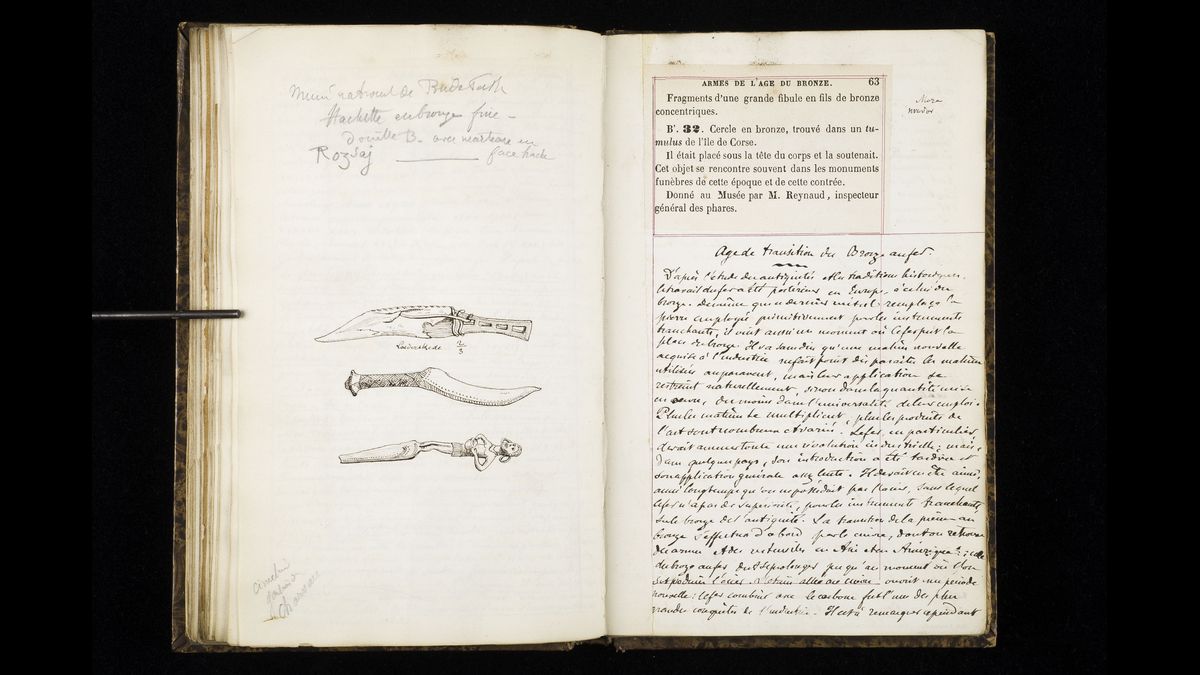 Musée national de Buda Pesth
Hachette en bronze fine -
Douille B. avec marteau en
Rozsaj face hache
2/3
ARMES DE L'AGE DU BRONZE. 63
Fragments d'une grande fibule en fils de bronze
concentriques.
B'. 32. Cercle en bronze, trouvé dans un tu-
mulus de l'île de Corse.
Il était placé sous la tête du corps et la soutenait.
Cet objet se rencontre souvent dans les monuments
funèbres de cette époque et de cette contrée.
Donné au Musée par M. Reynaud, inspecteur
général des phares.
Age de transition du Bronze au fer.
D'après l'étude des antiquités et les traditions historiques,
le travail du fer a été postérieur en Europe, à celui du
bronze. De même que ce dernier métal remplaça la
pierre employée primitivement pour les instruments
tranchants, il vint aussi un moment où le fer prit la
place du bronze. Il va sans dire qu'une matière nouvelle
acquise à l'industrie ne fait point disparaître les matières
utilisées auparavant, mais leur application se
restreint naturellement, sinon dans la quantité mise
en œuvre, du moins dans l'universalité de leur emploi.
Plus les matières se multiplient, plus les produits de
l'art sont nombreux et variés. Le fer, en particulier,
devait amener toute une révolution industrielle; mais,
dans quelques pays, son introduction a été tardive et
son application générale assez lente. Il devait en être ainsi,
aussi longtemps qu'on ne possédait pas l'acier, sans lequel
le fer n'a pas de supériorité, pour les instruments tranchants,
sur le bronze de l'antiquité. La transition de la pierre au
bronze s'effectua d'abord par le cuivre, dont on retrouve
des armes et des ustensiles en Asie et en Amérique; celle
du bronze au fer dut se prolonger jusqu'au moment où l'on
sut produire l'acier. ouvrit une période
nouvelle: le fer combiné avec le carbone fut l'une des plus
grandes conquêtes de l'industrie. Il est à remarquer cependant